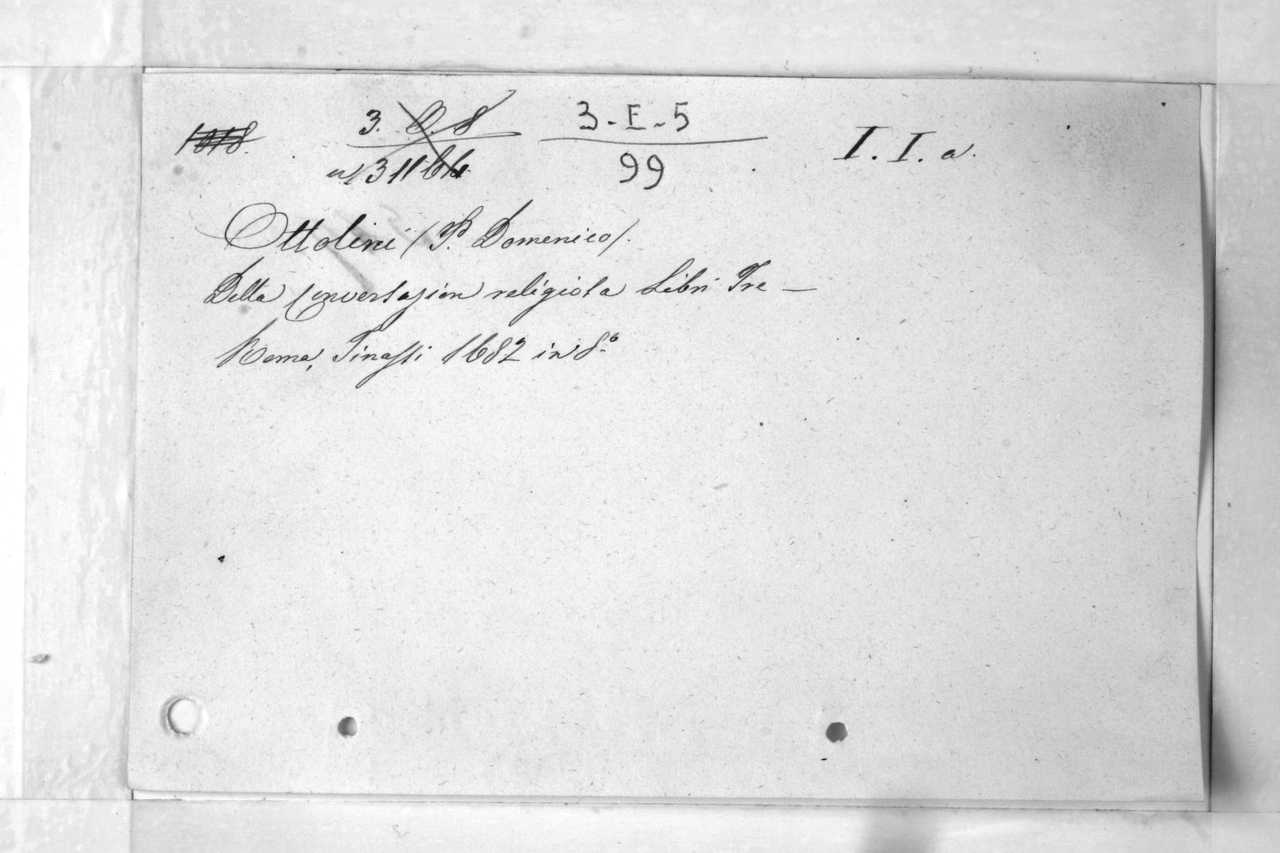 3. B. 8 3-E-5 I. I. a.
99
Ottolini (P. Domenico).
Della Conversazion religiosa Libri Tre —
Roma, Tinassi 1682 in 8.º